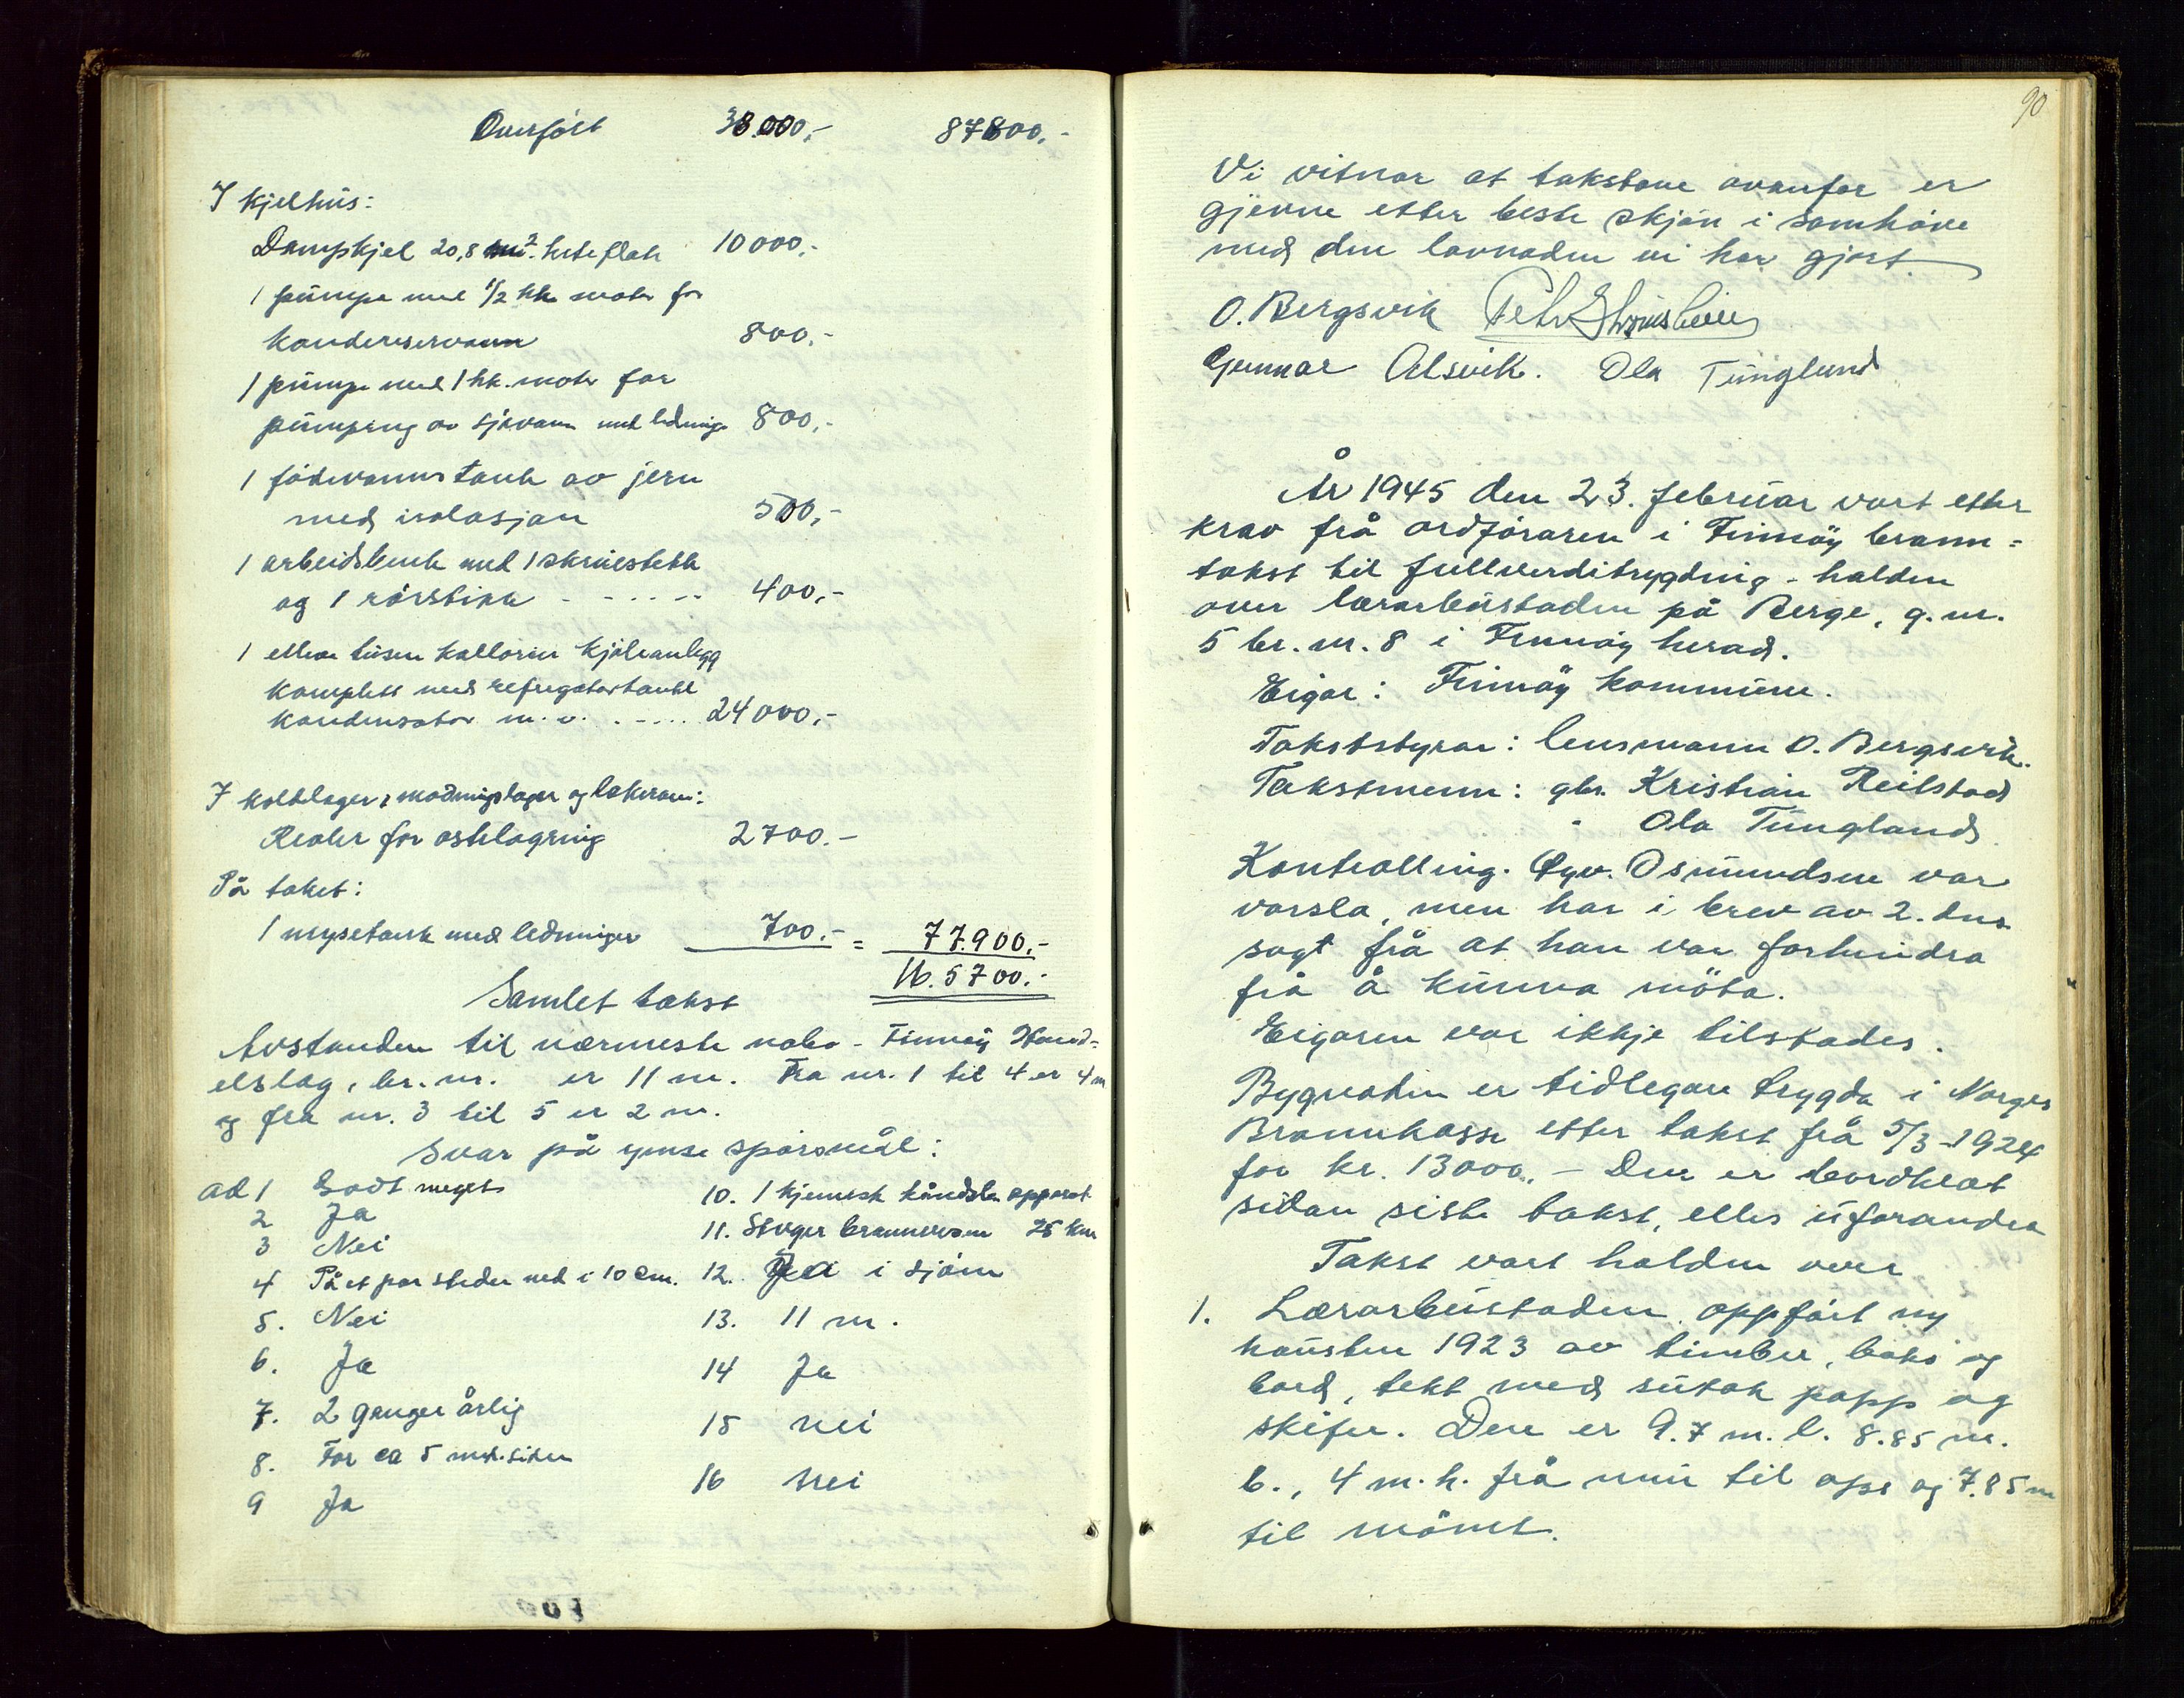 Overfört 38.000,- 87800,-
I kjelhus:
Dampkjel 20,8 m². heteflate 10000,-
1 pumpe med 1/2 hk motor for
kondenservann 800,-
1 pumpe med 1 hk. motor for
pumping av sjövann med ledninger 800,-
1 födevannstank av jern
med isolasjon 500,-
1 arbeidsbenk med 1 skruestikke
og 1 rörstikke - - - - - - 400,-
1 elleve tusen kallorier kjöleanlegg
komplett med refrigatortank
kondensator m. v. . - ... 24000,-
I kolelager, modningslager og lakerom:
Reoler for ostelagring 2700.-
På taket:
1 mysetank med ledninger 700.- = 77.900,-
Samlet takst 16.5700.-
Avstanden til nærmeste nabo - Finnöy Hand-
elslag, br. nr. er 11 m. Fra nr. 1 til 4 er 4 m
og fra nr. 3 til 5 er 2 m.
Svar på ymse spörsmål:
ad 1 Godt meget
2 Ja
3 Nei
4 På et par steder ned i 10 cm.
5. Nei
6. Ja
7. 2 ganger årlig
8. For ca 5 mdr. siden
9 Ja
10. 1 kjemisk håndslu apparat
11. brannvesen 25 km
12. Ja i sjöen
13. 11 m.
14 Ja
15 nei
16 nei
90
Vi vitnar at takstane ovanfor er
gjevne etter beste skjön i samhöve
med den lovnaden vi har gjort.
O. Bergsvik
Gunnar Alsvik. Ola Tungland
År 1945 den 23. februar vart etter
krav frå ordföraren i Finnöy brann-
takst til fullverditrygding - halden
over lærarbustaden på Berge, g. nr.
5 br. nr. 8 i Finnöy herad.
Eigar: Finnöy kommune.
Takststyrar: lensmann O. Bergsvik.
Takstmenn: gbr. Kristian Reilstad
- Ola Tungland
Kontrolling. Osmundsen var
varsla, men har i brev av 2. dns
sagt frå at han var forhindra
frå å kunna möta.
Eigaren var ikkje tilstades.
Bygnaden er tidlegare trygda i Norges
Brannkasse etter takst frå 5/3-1924
for kr. 13000,- Den er bordklædt
sidan siste takst, elles uforandra
Takst vart halden over
1. Lærarbustaden, oppfört ny
hausten 1923 av timber, boks og
bord, tekt med sutak papp og
skifer. Den er 9.7 m. l. 8.85 m.
b., 4 m. h. frå mur til ops og 7.85 m
til mönet.